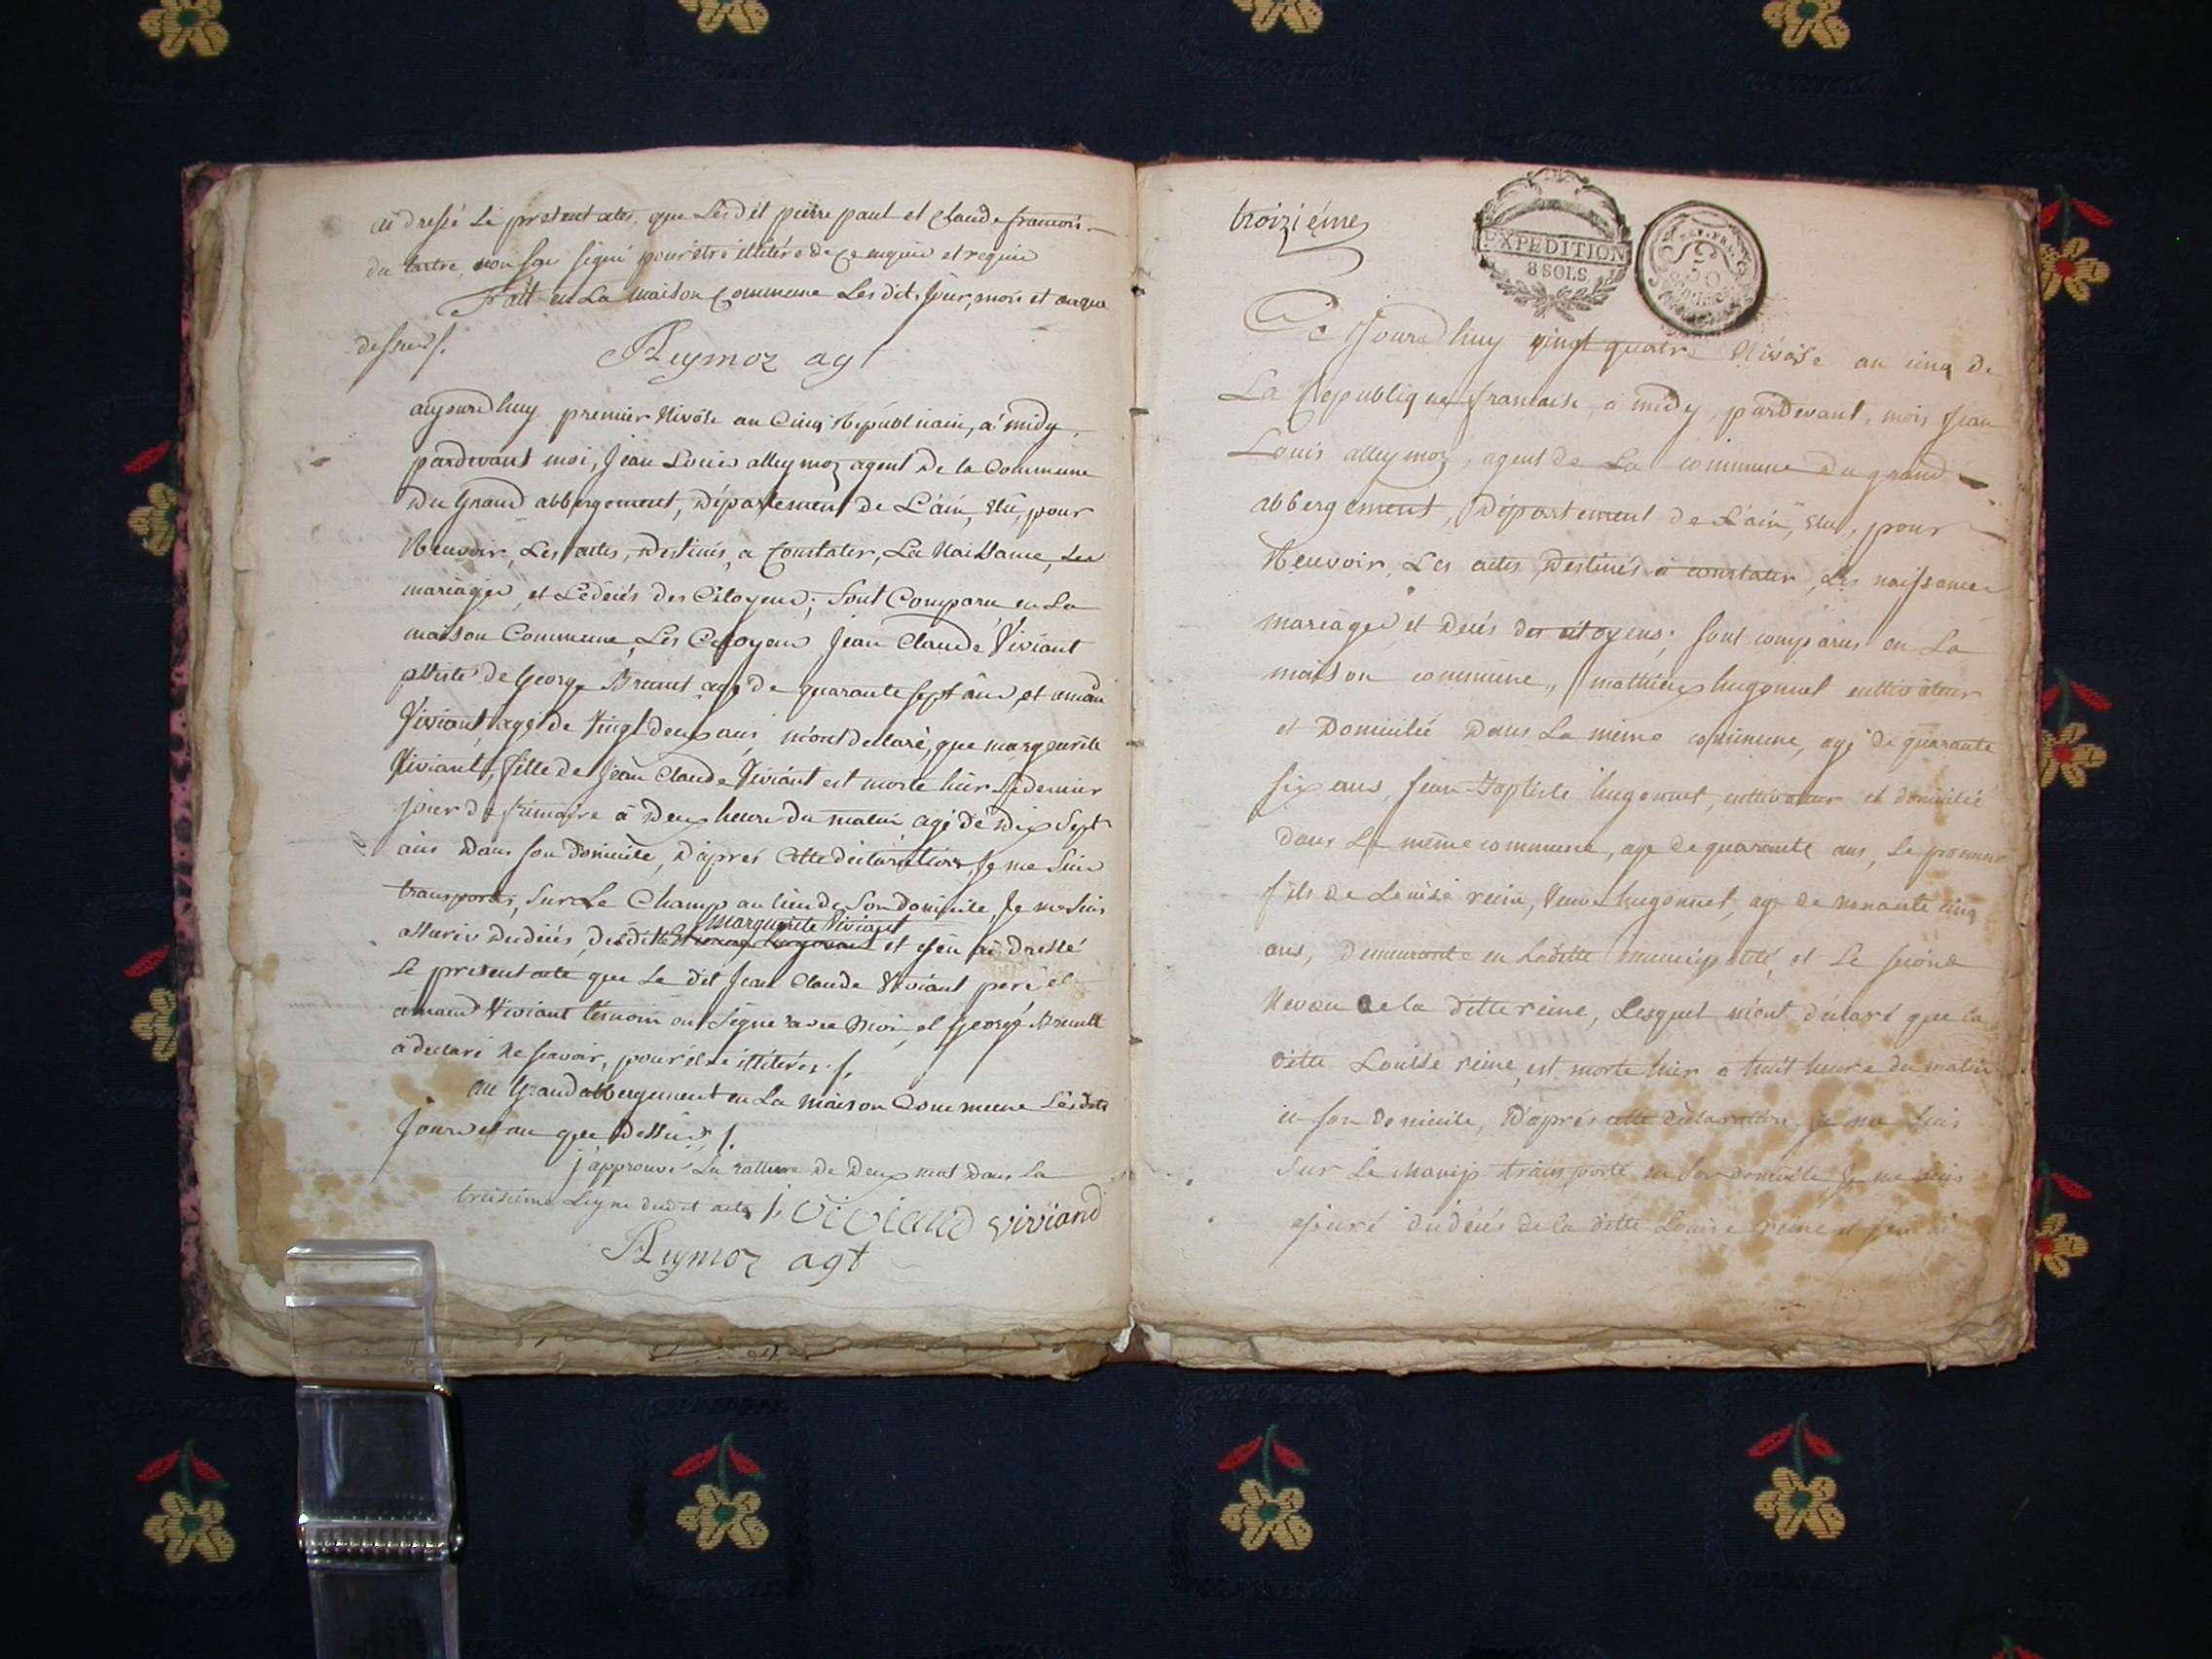 ai dressé le present acte, que lesdit pierre paul et Claude francois
du tartre, non seu signé pour être illitéré de ce enquis et requis
Fait en La maison Commune Les dits jour, mois et an que
dessus /.
Aleymoz agt
aujourdhuy premier Nivôse an Cinq Républicain, a midy,
pardevant moi, Jean Louis alleymoz agent De la Commune
Du Grand abbergement, Département de L'ain, Elu, pour
Recevoir, Les actes, Destinés, a Constater, La Naissance, Les
mariages, et Le décés des Citoyens; sont Comparu en La
maison Commune, Les Citoyens Jean Claude Viviant
de George Breant agé de quarante sept ans, et
Viviant, agé de Vingt deux ans m'ont declaré, que marguerite
Viviant, fille de Jean Claude Viviant est morte hier Le dernier
jour de frimaire à Deux heure du matin agé de Dix Sept
ans Dans son domicile, D'aprés Cette declaration Je me suis
transporté, sur Le Champ au lieu de son domicile, Je me suis
assuris du décés, desditte Marguerite Viviant et j'en ai Dressé
Le present acte que Le dit Jean Claude Viviant pere et
Viviant temoin ont signé avec Moi, et George
a declaré Ne scavoir, pour être illitérés /.
au Grand abbergement en La maison Commune Les dits
Jours et an que Dessus /.
j'approuve La rature De Deux mot Dans La
troisieme Ligne dudit acte /. viviand viviand
Aleymoz agt
troiziéme
EXPEDITION
8 SOLS
REP. FRA.
50
centimes
Ce Jourdhuy vingt quatre Nivôse an cinq de
La Republique francaise, a midy, pardevant, moi, Jean
Louis alleymoz, agent de La commune Du grand
abbergement, Département de L'ain, Elu, pour
Recevoir, Les actes, Destinés a constater, Les naissances
mariages et Decés des citoyens; sont comparus en La
maison commune, mathieu hugonnet cultivateur
et Domicilié Dans La meme commune, agé de quarante
six ans, Jean Baptiste hugonnet, cultivateur et domicilié
dans La même commune, age de quarante ans, Le premier
fils de Louise reine, Veuve hugonnet, age de nonante cinq
ans, Demeurante en Laditte municipalité, et Le second
Neveu de la ditte reine, Lesquel m'ont déclaré que la
ditte Louise reine, est morte hier a huit heure du matin
en son domicile, D'aprés cette déclaration, Je me suis
sur Le champ transporté en son domicile Je me suis
assuré du décés de la ditte Louise reine et j'en ai